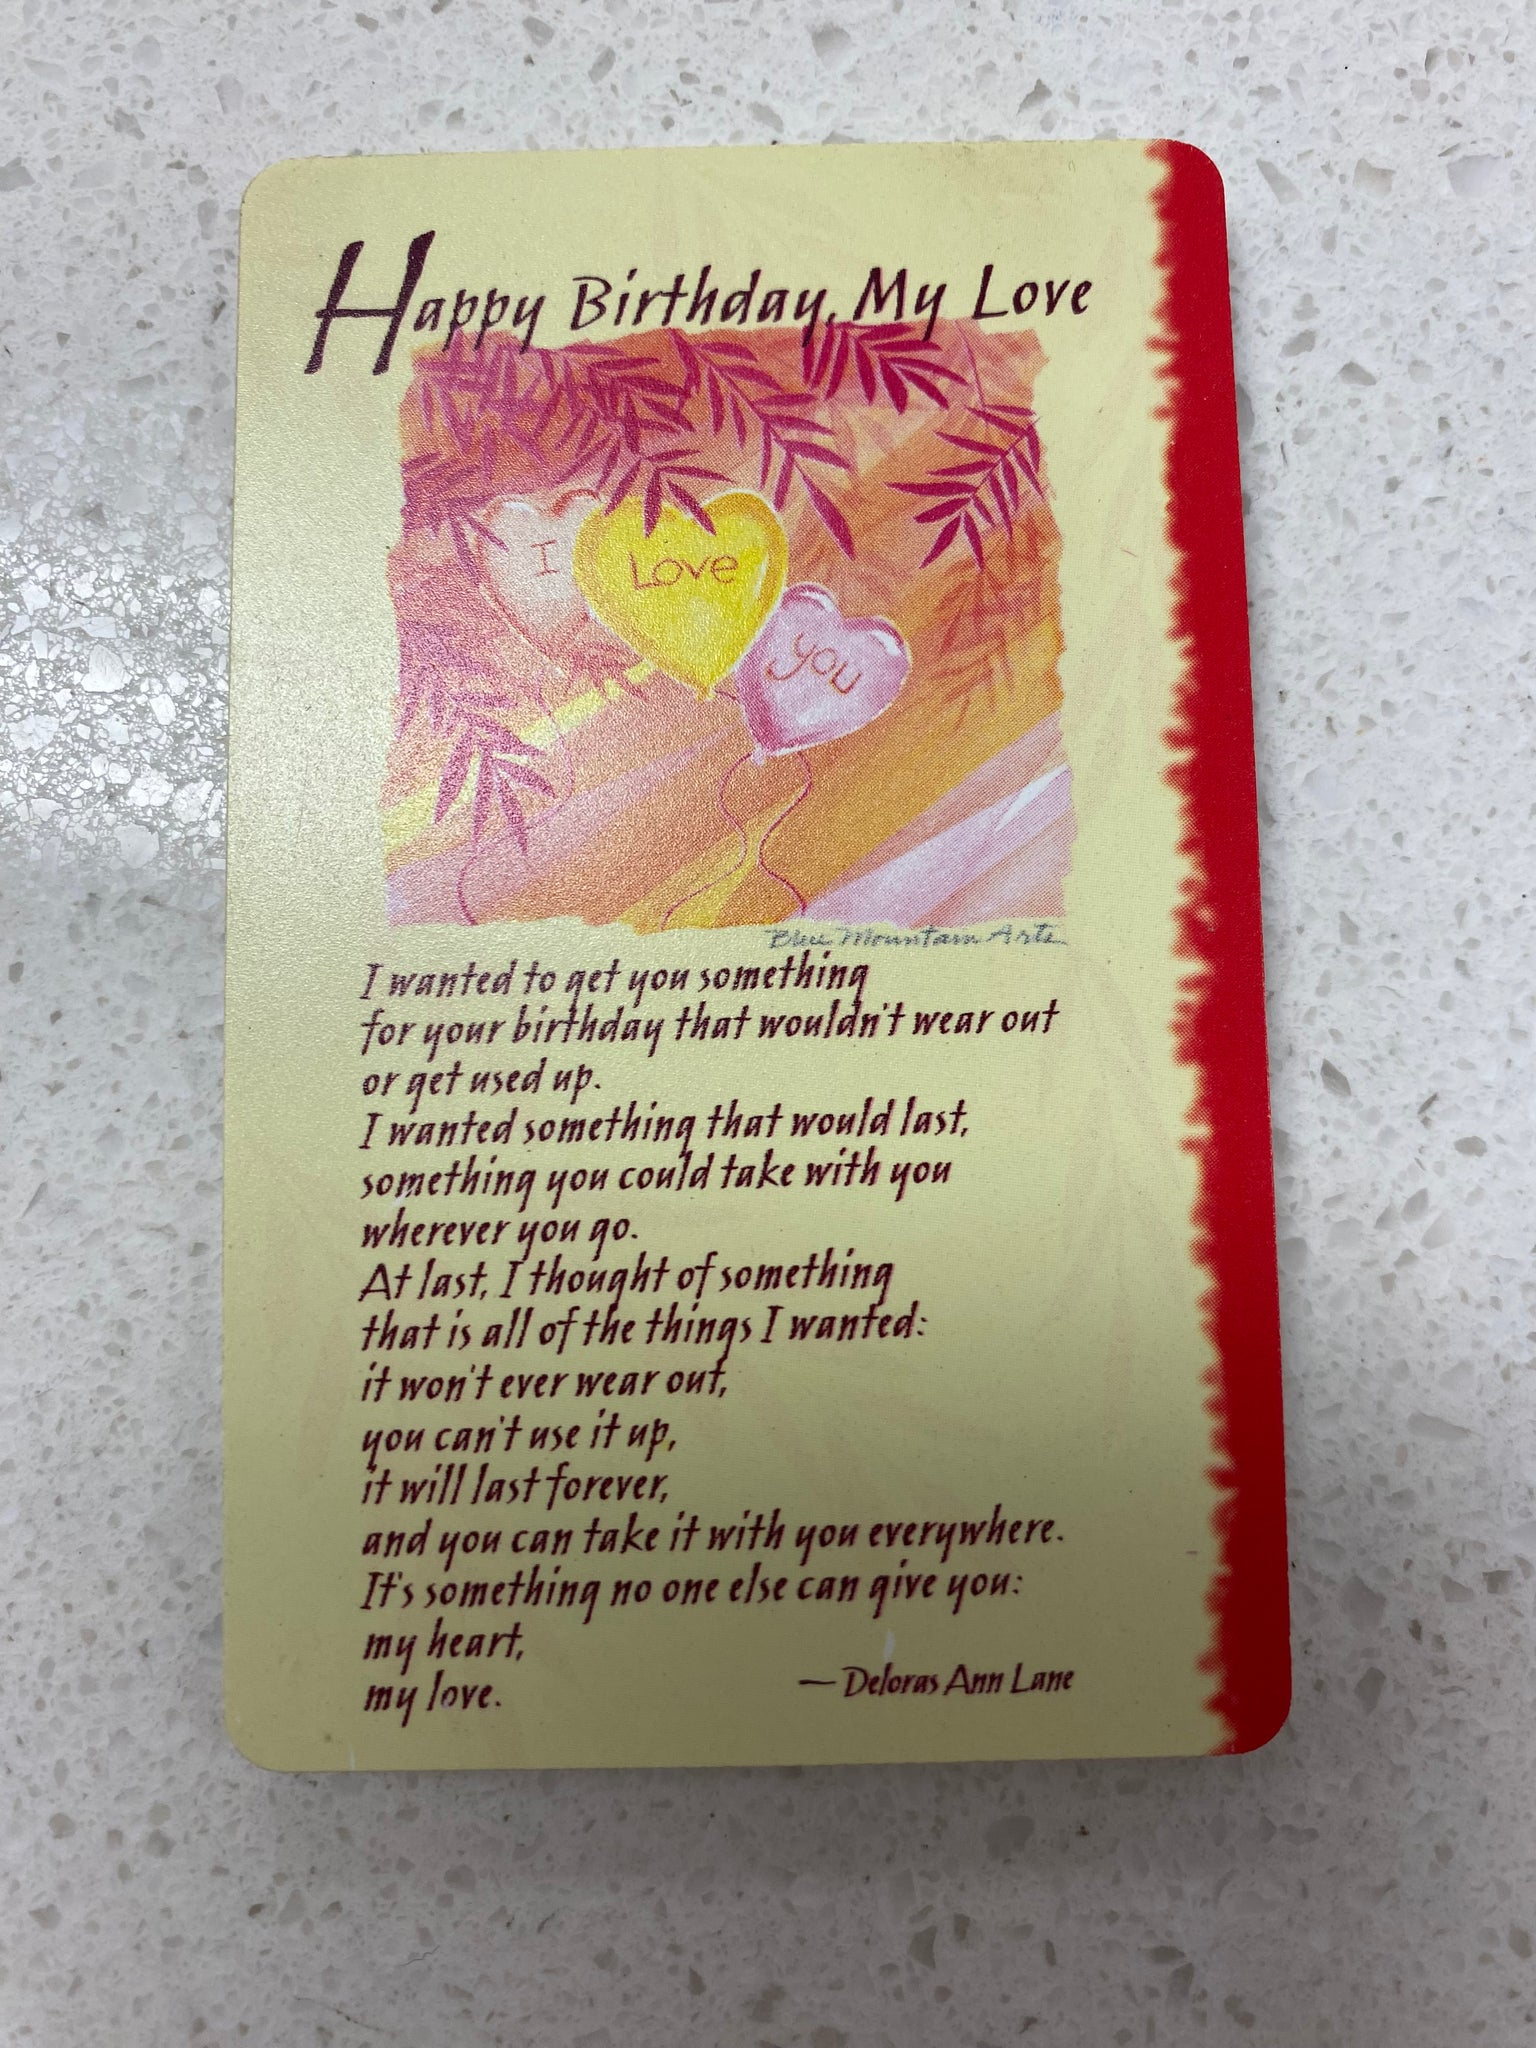 Happy Birthday, My Love
I
Love
you
Blue Mountain Arts
I wanted to get you something
for your birthday that wouldn't wear out
or get used up.
I wanted something that would last,
something you could take with you
wherever you go.
At last, I thought of something
that is all of the things I wanted:
it won't ever wear out,
you can't use it up,
it will last forever,
and you can take it with you everywhere.
It's something no one else can give you:
my heart,
my love.
— Deloras Ann Lane